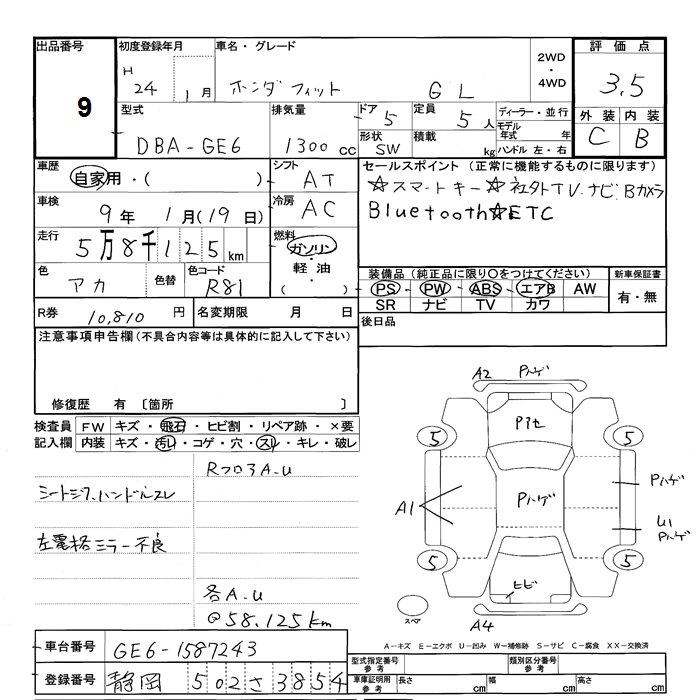 出品番号 初度登録年月 車名・グレード 2WD・4WD 評価点
9
H 24 1月 ホンダフィット GL 3.5
型式 排気量 ドア 定員 ディーラー・並行 外装 内装
DBA-GE6 1300cc 5 5人 モデル年式 年 C B
形状 SW 積載 kg ハンドル 左・右
車歴 自家用・( ) シフト AT セールスポイント (正常に機能するものに限ります)
☆スマートキー☆社外TV.ナビ.Bカメラ
車検 9年 1月(19日) 冷房 AC Bluetooth☆ETC
走行 5万8千125km 燃料 ガソリン・軽油・( )
色 アカ 色替 色コード R81 装備品(純正品に限り○をつけてください) 新車保証書
PS PW ABS エアB AW 有・無
SR ナビ TV カワ
R券 10,810円 名変期限 月 日 後日品
注意事項申告欄(不具合内容等は具体的に記入して下さい)
修復歴 有 〔箇所 〕
検査員 FW キズ・飛石・ヒビ割・リペア跡・×要
記入欄 内装 キズ・汚れ・コゲ・穴・スレ・キレ・破レ
A2 Pハゲ
Pﾄセ
5 5
Rフロ3A.U
シートシワ.ハンドルスレ
A1 Pハゲ Pハゲ
U1 Pハゲ
左電格ミラー不良
5 5
ヒビ
各A.U
@58.125km
スペア A4
A-キズ E-エクボ U-凹み W-補修跡 S-サビ C-腐食 XX-交換済
車台番号 GE6-1587243
型式指定番号 参考 類別区分番号 参考
登録番号 静岡 502さ3854
車庫証明用 参考 長さ cm 幅 cm 高さ cm